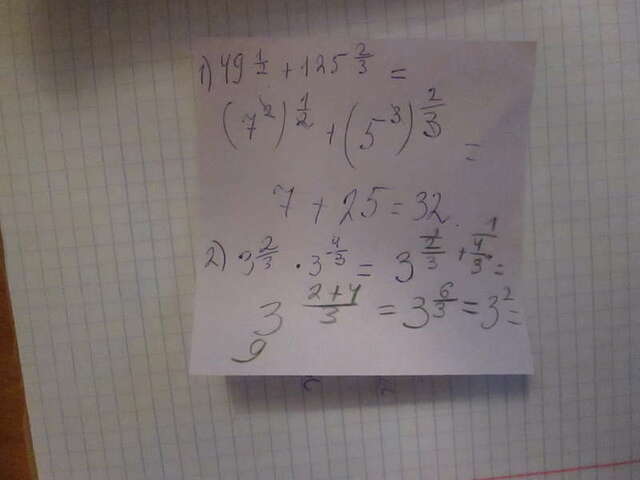 1) 49^(1/2) + 125^(2/3) =
(7^2)^(1/2) + (5^3)^(2/3) =
7 + 25 = 32
2) 3^(2/3) · 3^(4/3) = 3^(2/3 + 4/3) =
3^((2+4)/3) = 3^(6/3) = 3^2 =
9